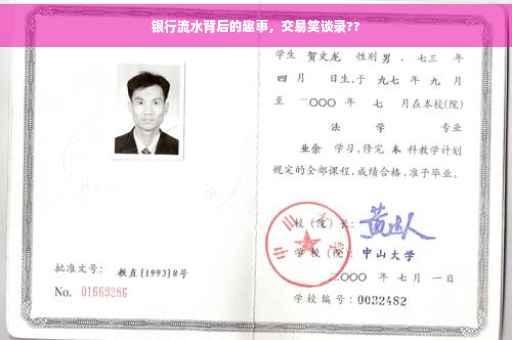 银行流水背后的趣事，交易笑谈录??
学生 贺文龙 性别 男 . 七三 年
四 月 日生,于 九七 年 九 月
至 二〇〇〇 年 七 月在本校(院)
法 学 专业
业余 学习,修完 本 科教学计划
规定的全部课程,成绩合格,准予毕业。
校(院)长:
学 校(院) 中山大学
批准文号: 教直[1993]8号
二〇〇〇 年 七 月 一 日
No. 01669286
学校编号: 0032482